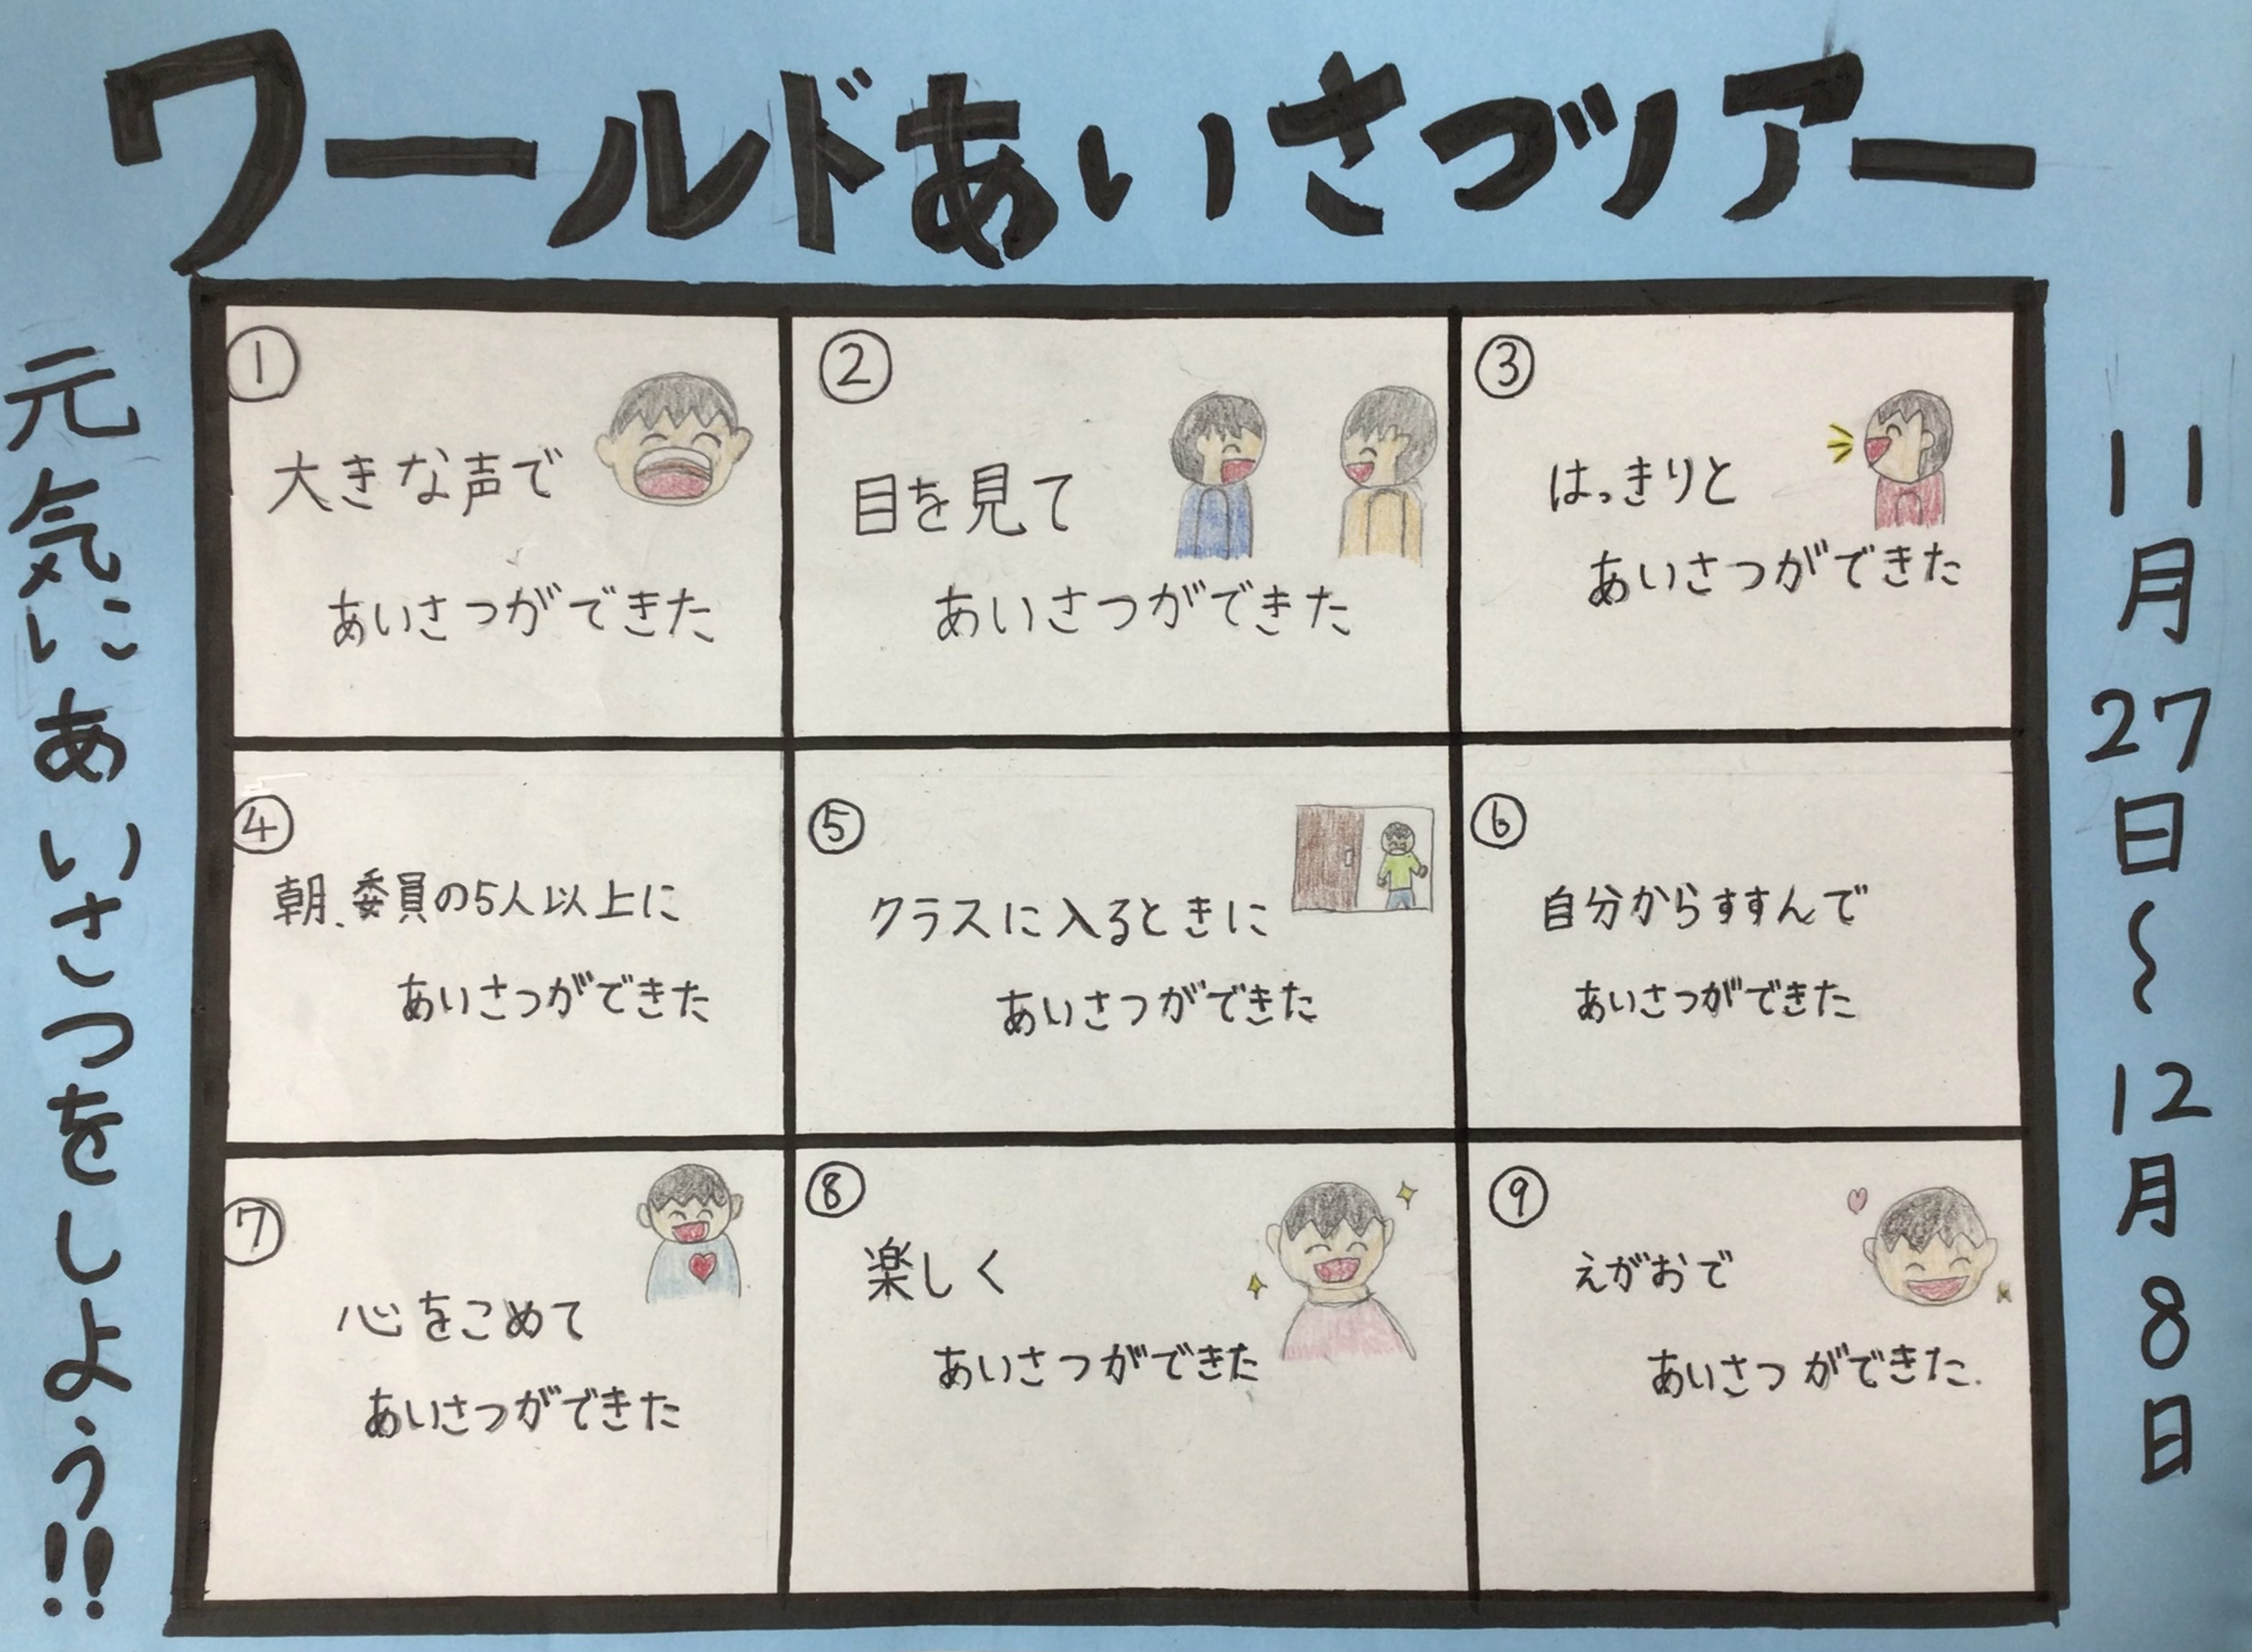 ワールドあいさつツアー
元気にあいさつをしよう!!
11月27日〜12月8日
①
大きな声で
あいさつができた
②
目を見て
あいさつができた
③
はっきりと
あいさつができた
④
朝、委員の5人以上に
あいさつができた
⑤
クラスに入るときに
あいさつができた
⑥
自分からすすんで
あいさつができた
⑦
心をこめて
あいさつができた
⑧
楽しく
あいさつができた
⑨
えがおで
あいさつができた.